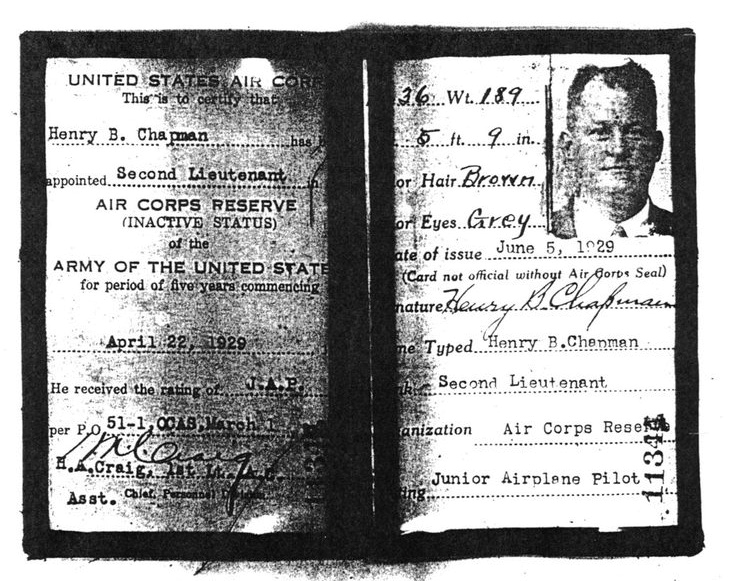 UNITED STATES AIR CORP
This is to certify that
Henry B. Chapman has
appointed Second Lieutenant
AIR CORPS RESERVE
(INACTIVE STATUS)
of the
ARMY OF THE UNITED STATE
for period of five years commencing
April 22, 1929
He received the rating of J.A.P.
per P.O. 51-1, OCAS, March 1
H.A.Craig, 1st Lt.
Asst. Chief, Personnel Division
36 Wt. 189
5 ft. 9 in.
or Hair Brown
or Eyes Grey
ate of issue June 5, 1929
(Card not official without Air Corps Seal)
nature Henry B. Chapman
me Typed Henry B.Chapman
Second Lieutenant
anization Air Corps Reserve
Junior Airplane Pilot
ing